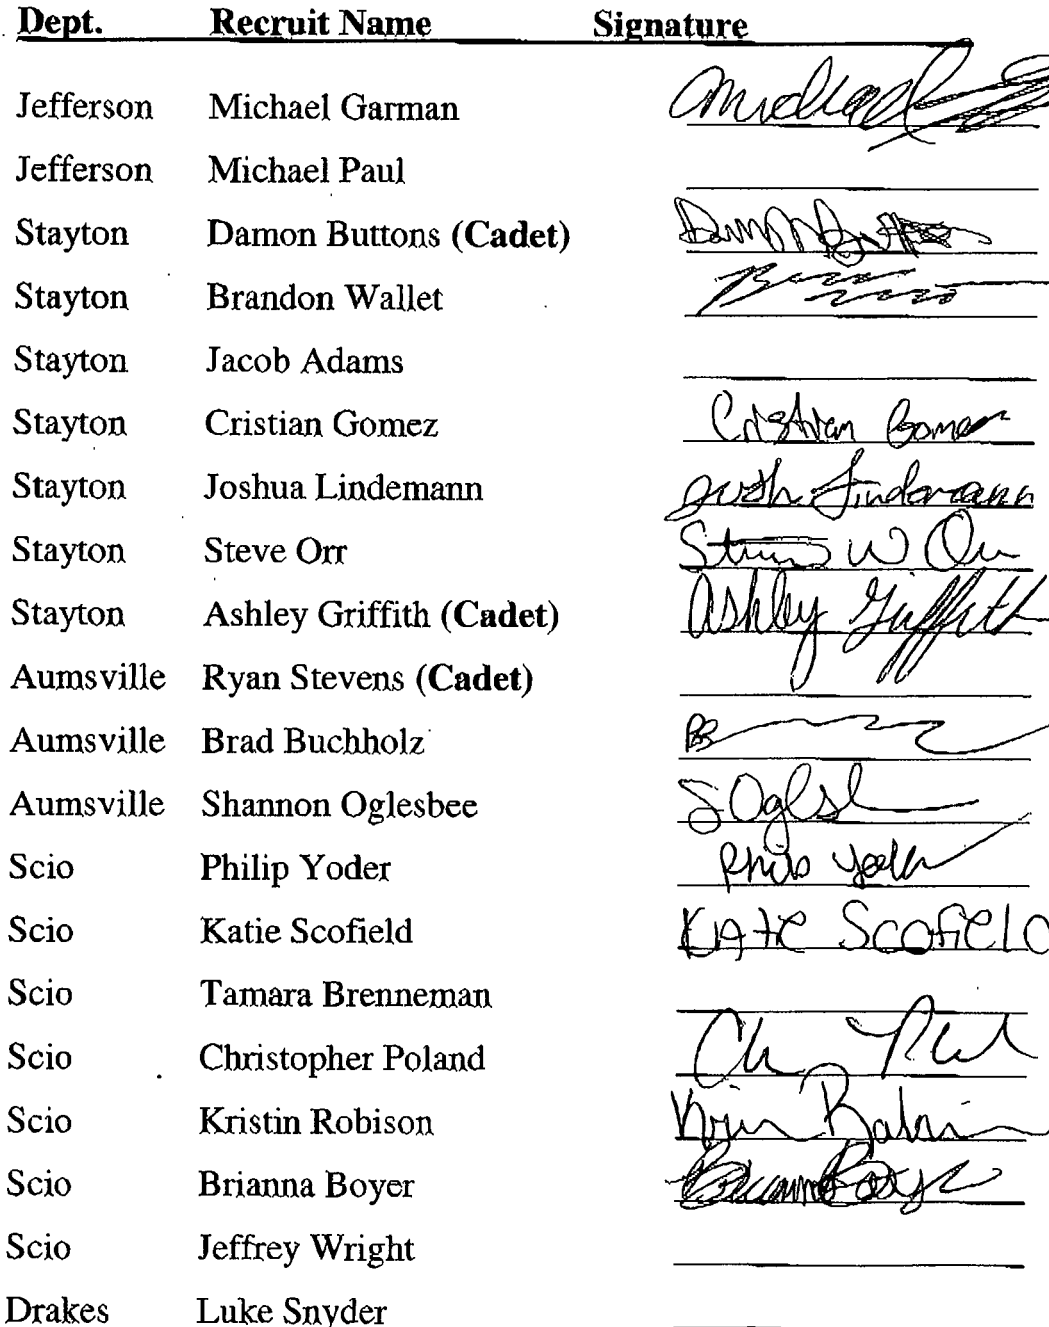 Dept. Recruit Name Signature
Jefferson Michael Garman Michael
Jefferson Michael Paul
Stayton Damon Buttons (Cadet) Damon Buttons
Stayton Brandon Wallet
Stayton Jacob Adams
Stayton Cristian Gomez Cristian Gomez
Stayton Joshua Lindemann Josh Lindemann
Stayton Steve Orr Steven W Orr
Stayton Ashley Griffith (Cadet) Ashley Griffith
Aumsville Ryan Stevens (Cadet)
Aumsville Brad Buchholz
Aumsville Shannon Oglesbee S Oglsb
Scio Philip Yoder Philip Yoder
Scio Katie Scofield Katie Scofield
Scio Tamara Brenneman
Scio Christopher Poland
Scio Kristin Robison
Scio Brianna Boyer Brianna Boyer
Scio Jeffrey Wright
Drakes Luke Snyder